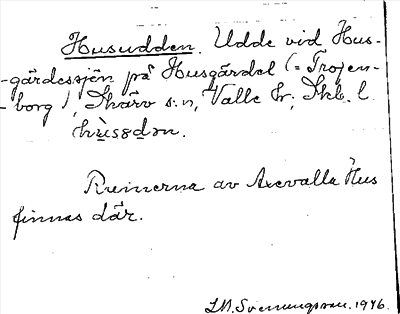 Husudden. Udde vid Hus-
-gärdessjön på Husgärdet (= Trojen-
-borg), Skärv s:n, Valle hr, Skb. l.
Ruinerna av Axevalla Hus
finnas där.
S.M. Svenungsson. 1946.